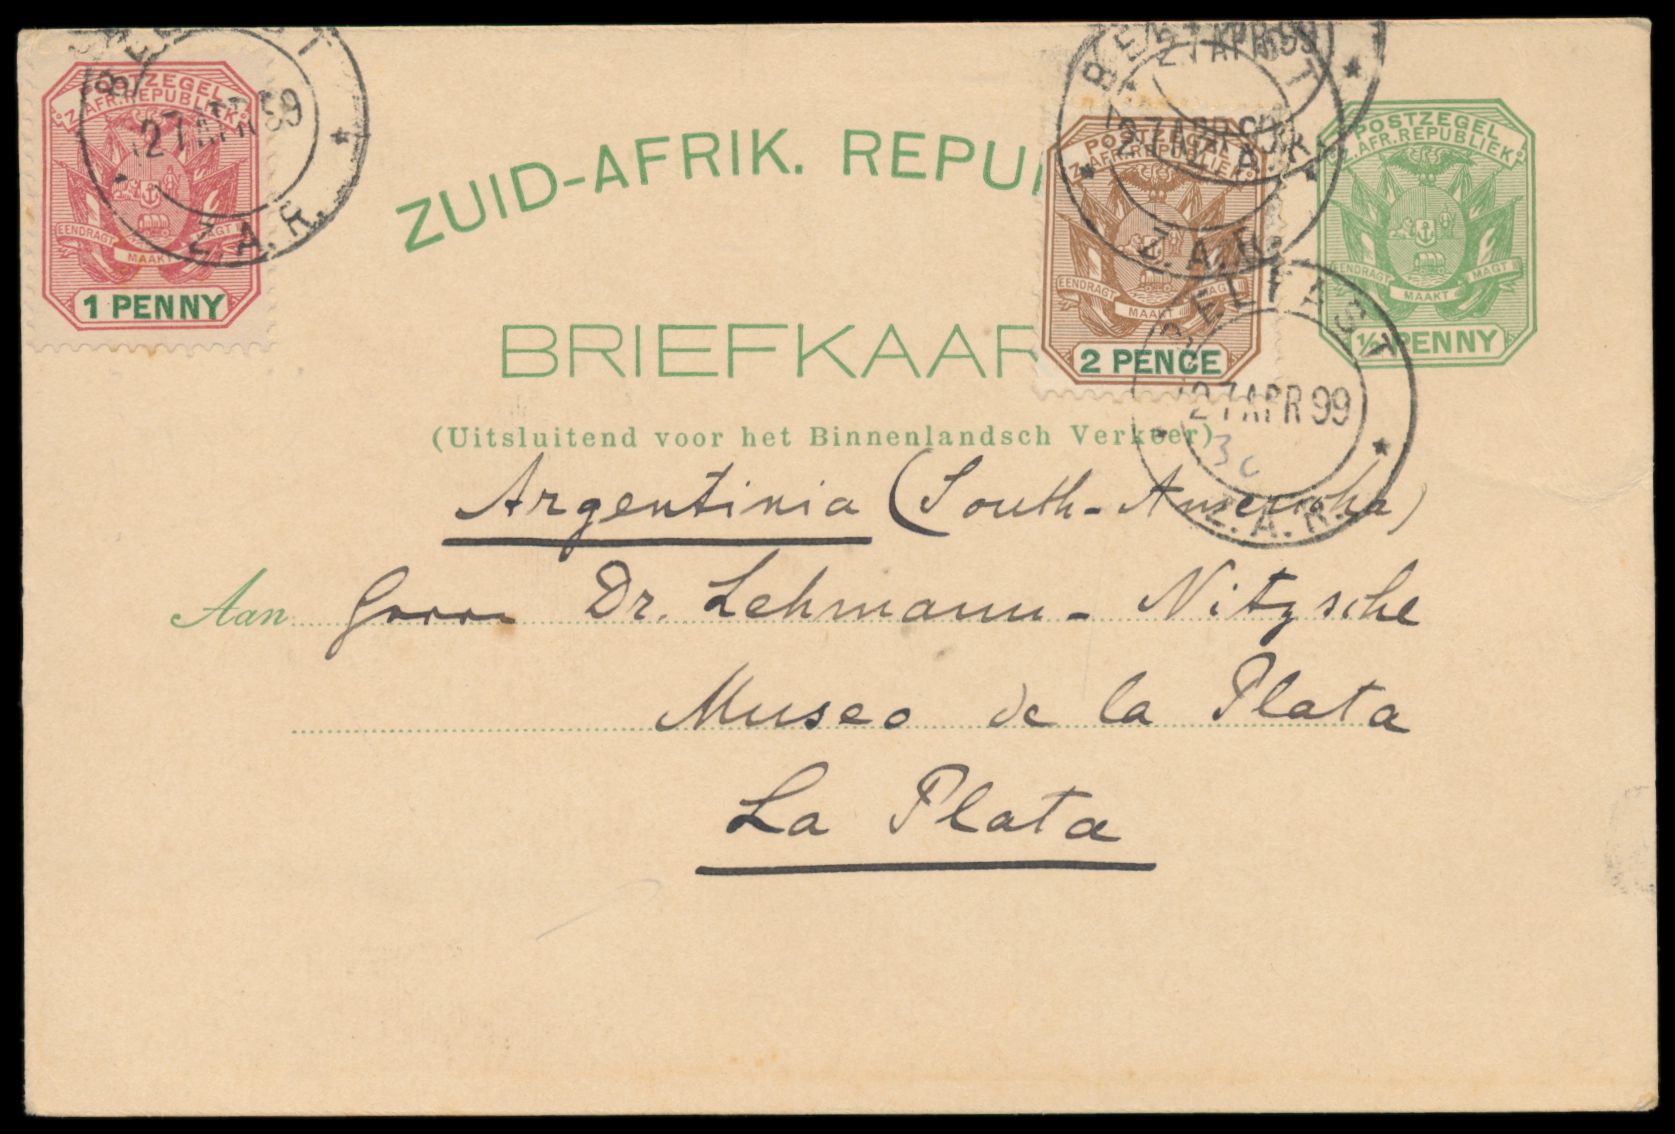 POSTZEGEL
Z.AFR.REPUBLIEK
EENDRAGT MAAKT MAGT
1 PENNY
BELFAST
27 APR 99
Z.A.R.
ZUID-AFRIK. REPU
BRIEFKAAR
(Uitsluitend voor het Binnenlandsch Verkeer)
POSTZEGEL
Z.AFR.REPUBLIEK
EENDRAGT MAAKT MAGT
2 PENCE
BELFAST
27 APR 99
Z.A.R.
27 APR 99
Z.A.R.
POSTZEGEL
Z.AFR.REPUBLIEK
EENDRAGT MAAKT MAGT
½ PENNY
BELFAST
27 APR 99
Z.A.R.
Argentinia (South-Amerika)
Aan Dr. Lehmann-Nitzsche
Museo de la Plata
La Plata